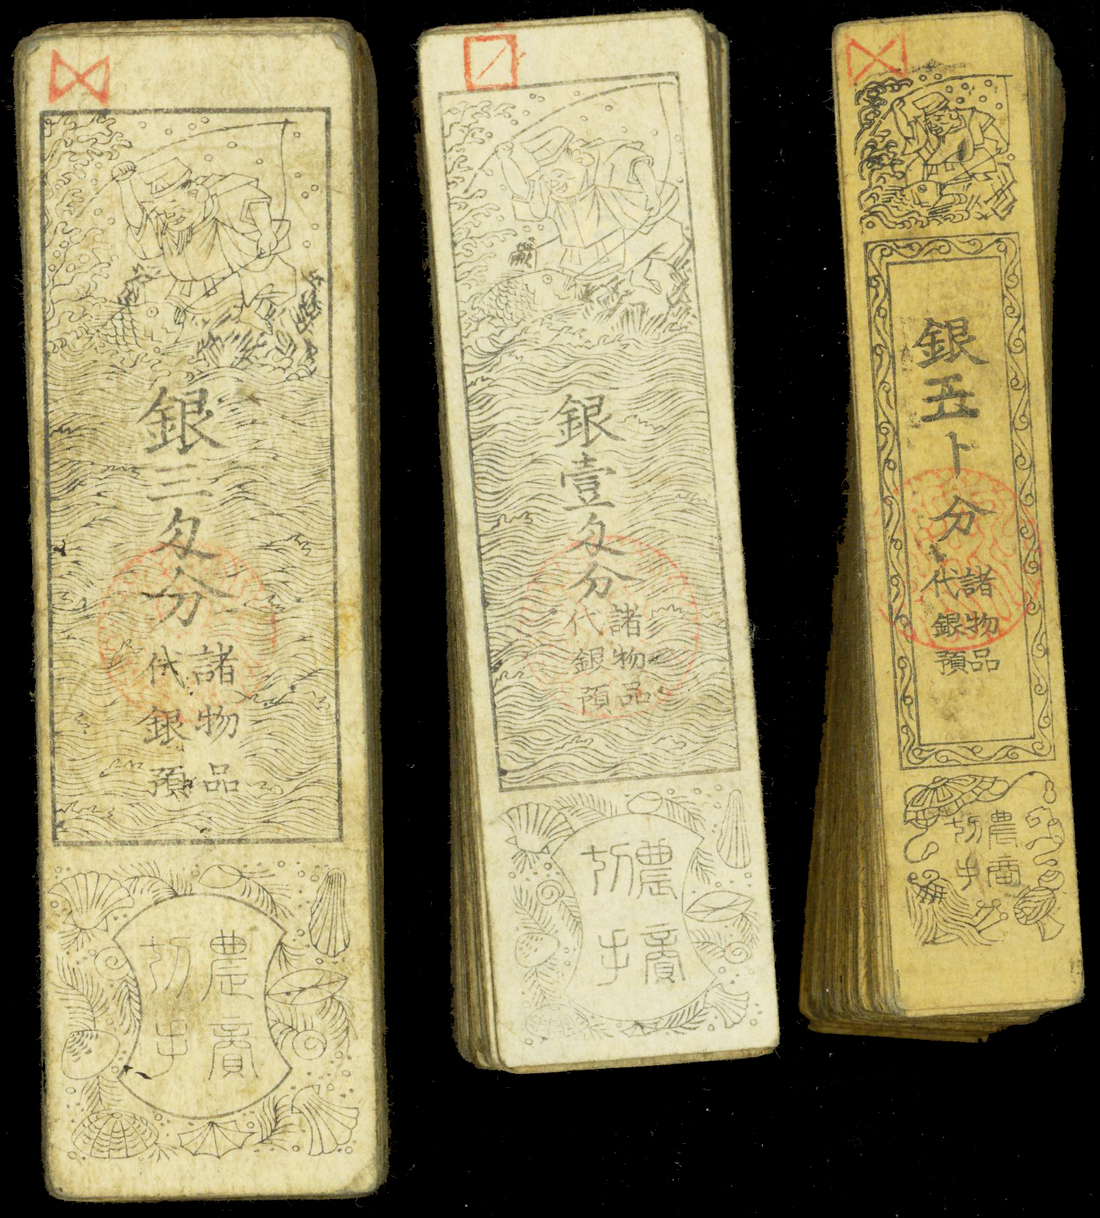 銀三匁分
諸物品
代銀預
農商
切手
銀壹匁分
諸物品
代銀預
農商
切手
銀五卜分
諸物品
代銀預
農商
切手